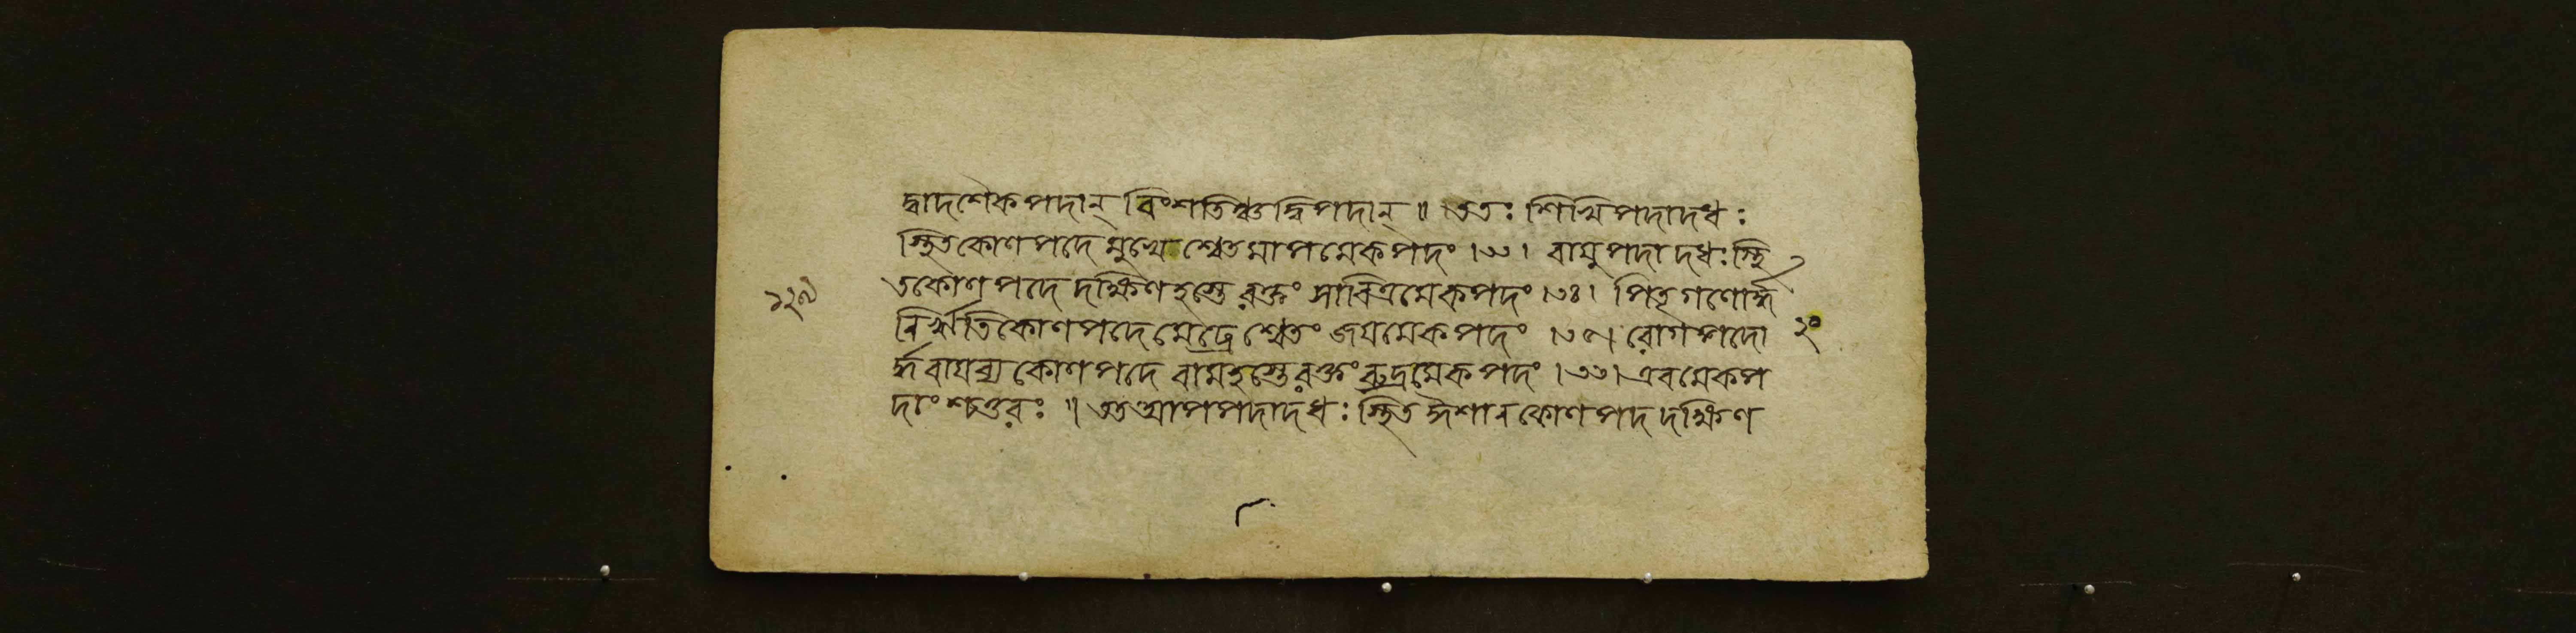 দ্বাদশৈকপদান্ বিংশতিঞ্চ দ্বিপদান্ ॥ ততঃ শিখিপদাদধঃ
স্থিতকোণপদে মুখে শ্বেতমাপমেকপদং ।৩৩। বায়ুপদাদধঃস্থি
তকোণপদে দক্ষিণহস্তে ৰক্তং সাবিত্রমেকপদং ।৩৪। পিতৃগণোর্দ্ধ
নিৰ্ঋতিকোণপদে মেঢ্রে শ্বেতং জয়মেকপদং ।৩৫। ৰোগপদো
ৰ্দ্ধবায়ব্যকোণপদে বামহস্তে ৰক্তং ৰুদ্ৰমেকপদং ।৩৬। এবমেকপ
দাংশ্চতুৰঃ ॥ তত আপপদাদধঃ স্থিত ঈশানকোণপদ দক্ষিণ
১২৯
২০